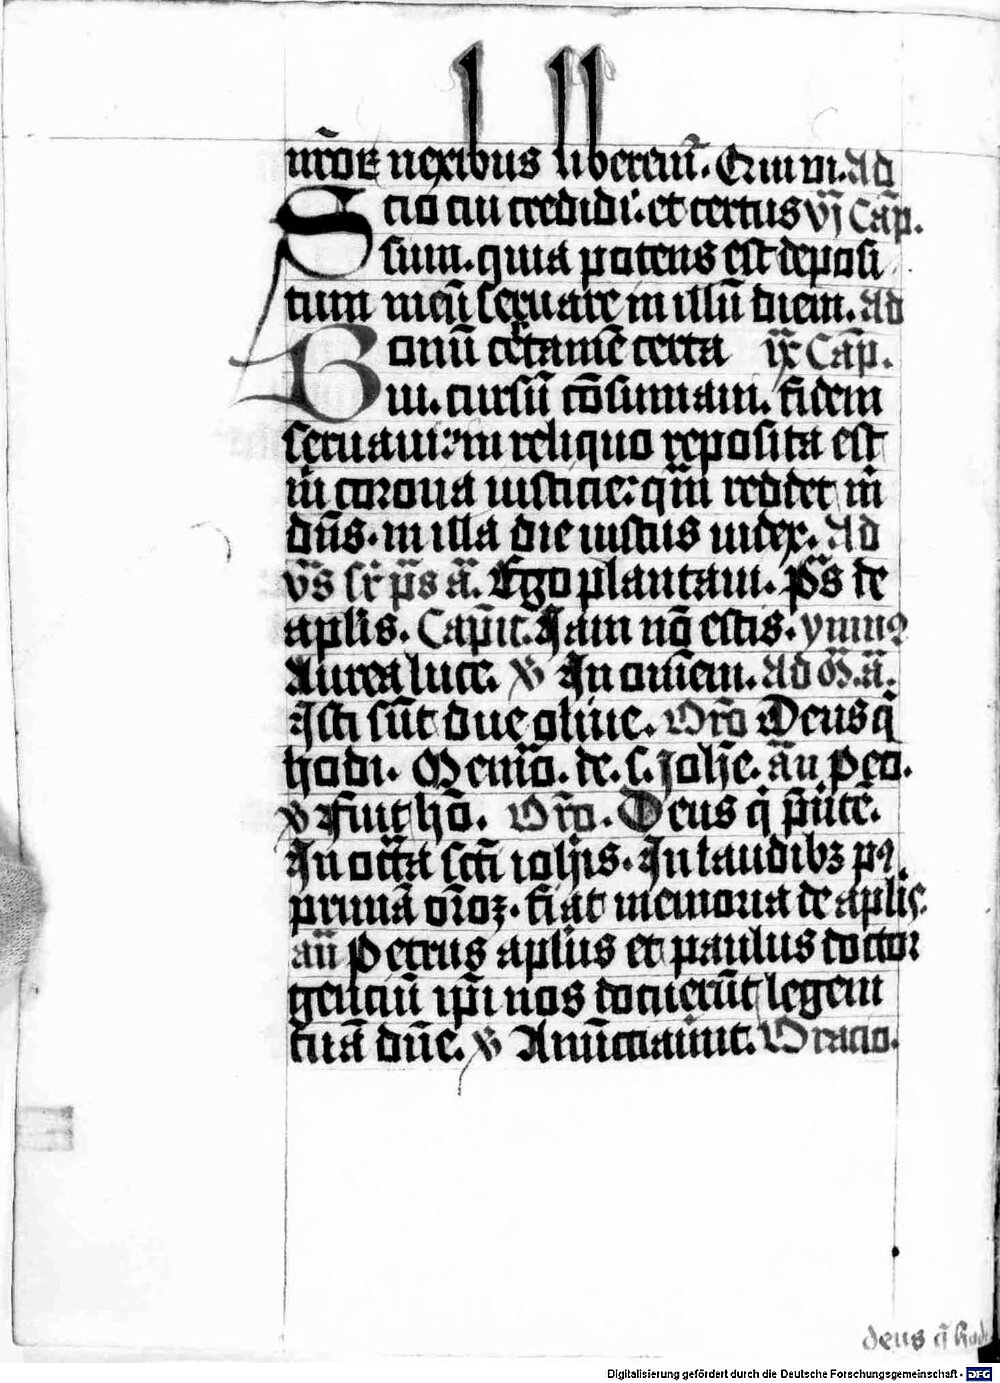 nr̄oꝝ nexibus liberem̄. Q̄ui vi. Ad
Scio cui credidi: et certus vj Cap̄.
sum. quia potens est deposi
tum meū seruare in illū diem. Ad
Bonū certamē certa ix Cap̄.
ui. cursū cōsumaui. fidem
seruaui: in reliquo reposita est
m̄ corona iusticie: qm̄ reddet m̄
dn̄s. in illa die iustus iudex. Ad
vs̄ sr̄ ps̄ a. Ego plantaui. Ps̄ de
aplis. Capit̄. Jam nō estis. ymnꝰ
Aurea luce. ℣ In omnem. Ad M. a.
Isti sūt due oliue. Or̄o Deus q̄
hodi. Memō. de. s. Joh̄e. an̄ Pro.
℣ Fuit hō. Or̄o. Deus q̄ p̄nte.
In octā scti ioh̄is. In laudibꝫ pꝰ
primā or̄oꝫ. fiat memoria de aplis.
an̄ Petrus aplus et paulus doctor
genciū ip̄i nos docuerūt legem
tuā dn̄e. ℣ Annūciauint. Oracio.
deus q̄ hod
Digitalisierung gefördert durch die Deutsche Forschungsgemeinschaft - DFG